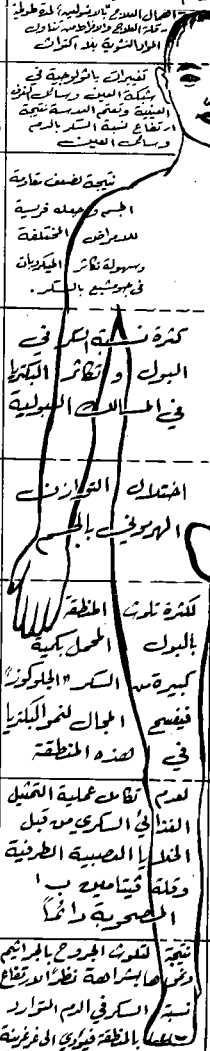 اهمال العلاج بالانسولين لمدة طويلة
وقلة العلاج والافراط من تناول
المواد النشوية بلا اكتراث
تغيرات باثولوجية في
شبكة العين وسائل
العينية وتعتم العدسة نتيجة
ارتفاع نسبة السكر بالدم
وسائل العين
نتيجة لضعف مقاومة
الجسم وجعله فريسة
للامراض المختلفة
وسهولة تكاثر الميكروبات
في جو مشبع بالسكر.
كثرة نسبة السكر في
البول وتكاثر البكتريا
في المسالك البولية
اختلال التوازن
الهرموني بالجسم
لكثرة تلوث المنطقة
بالبول المحمل بكمية
كبيرة من السكر "الجلوكوز"
فيفسح المجال لنمو البكتريا
في هذه المنطقة
لعدم تكامل عملية التمثيل
الغذائي السكري من قبل
الخلايا العصبية الطرفية
وقلة فيتامين ب١
المصحوبة دائماً
نتيجة لتلوث الجروح بالجراثيم
ونموها بشراهة نظراً لارتفاع
نسبة السكر في الدم التوارد
بالمنطقة فيؤدي الى غرغرينة